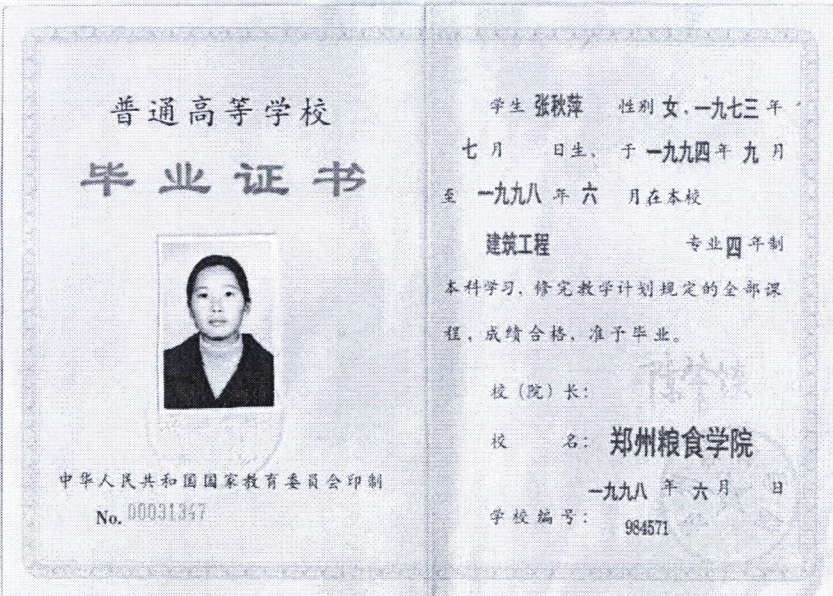 普通高等学校
毕业证书
中华人民共和国国家教育委员会印制
No. 00031347
学生 张秋萍 性别 女、一九七三 年
七 月 日生、于 一九九四 年 九 月
至 一九九八 年 六 月在本校
建筑工程 专业 四 年制
本科学习、修完教学计划规定的全部课
程,成绩合格,准予毕业。
校(院)长:
校 名: 郑州粮食学院
一九九八 年 六 月 日
学校编号: 984571